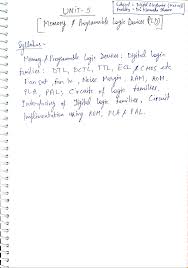 UNIT-5
Subject - Digital Electronics
[Memory & Programmable Logic Devices (PLD)]
Syllabus -
Memory & Programmable Logic Devices: Digital Logic
families: DTL, DCTL, TTL, ECL & CMOS etc
Fan out, fan in, Noise Margin, RAM, ROM,
PLA, PAL; Circuits of Logic families,
Interfacing of Digital Logic families, Circuit
Implementation using ROM, PLA & PAL.